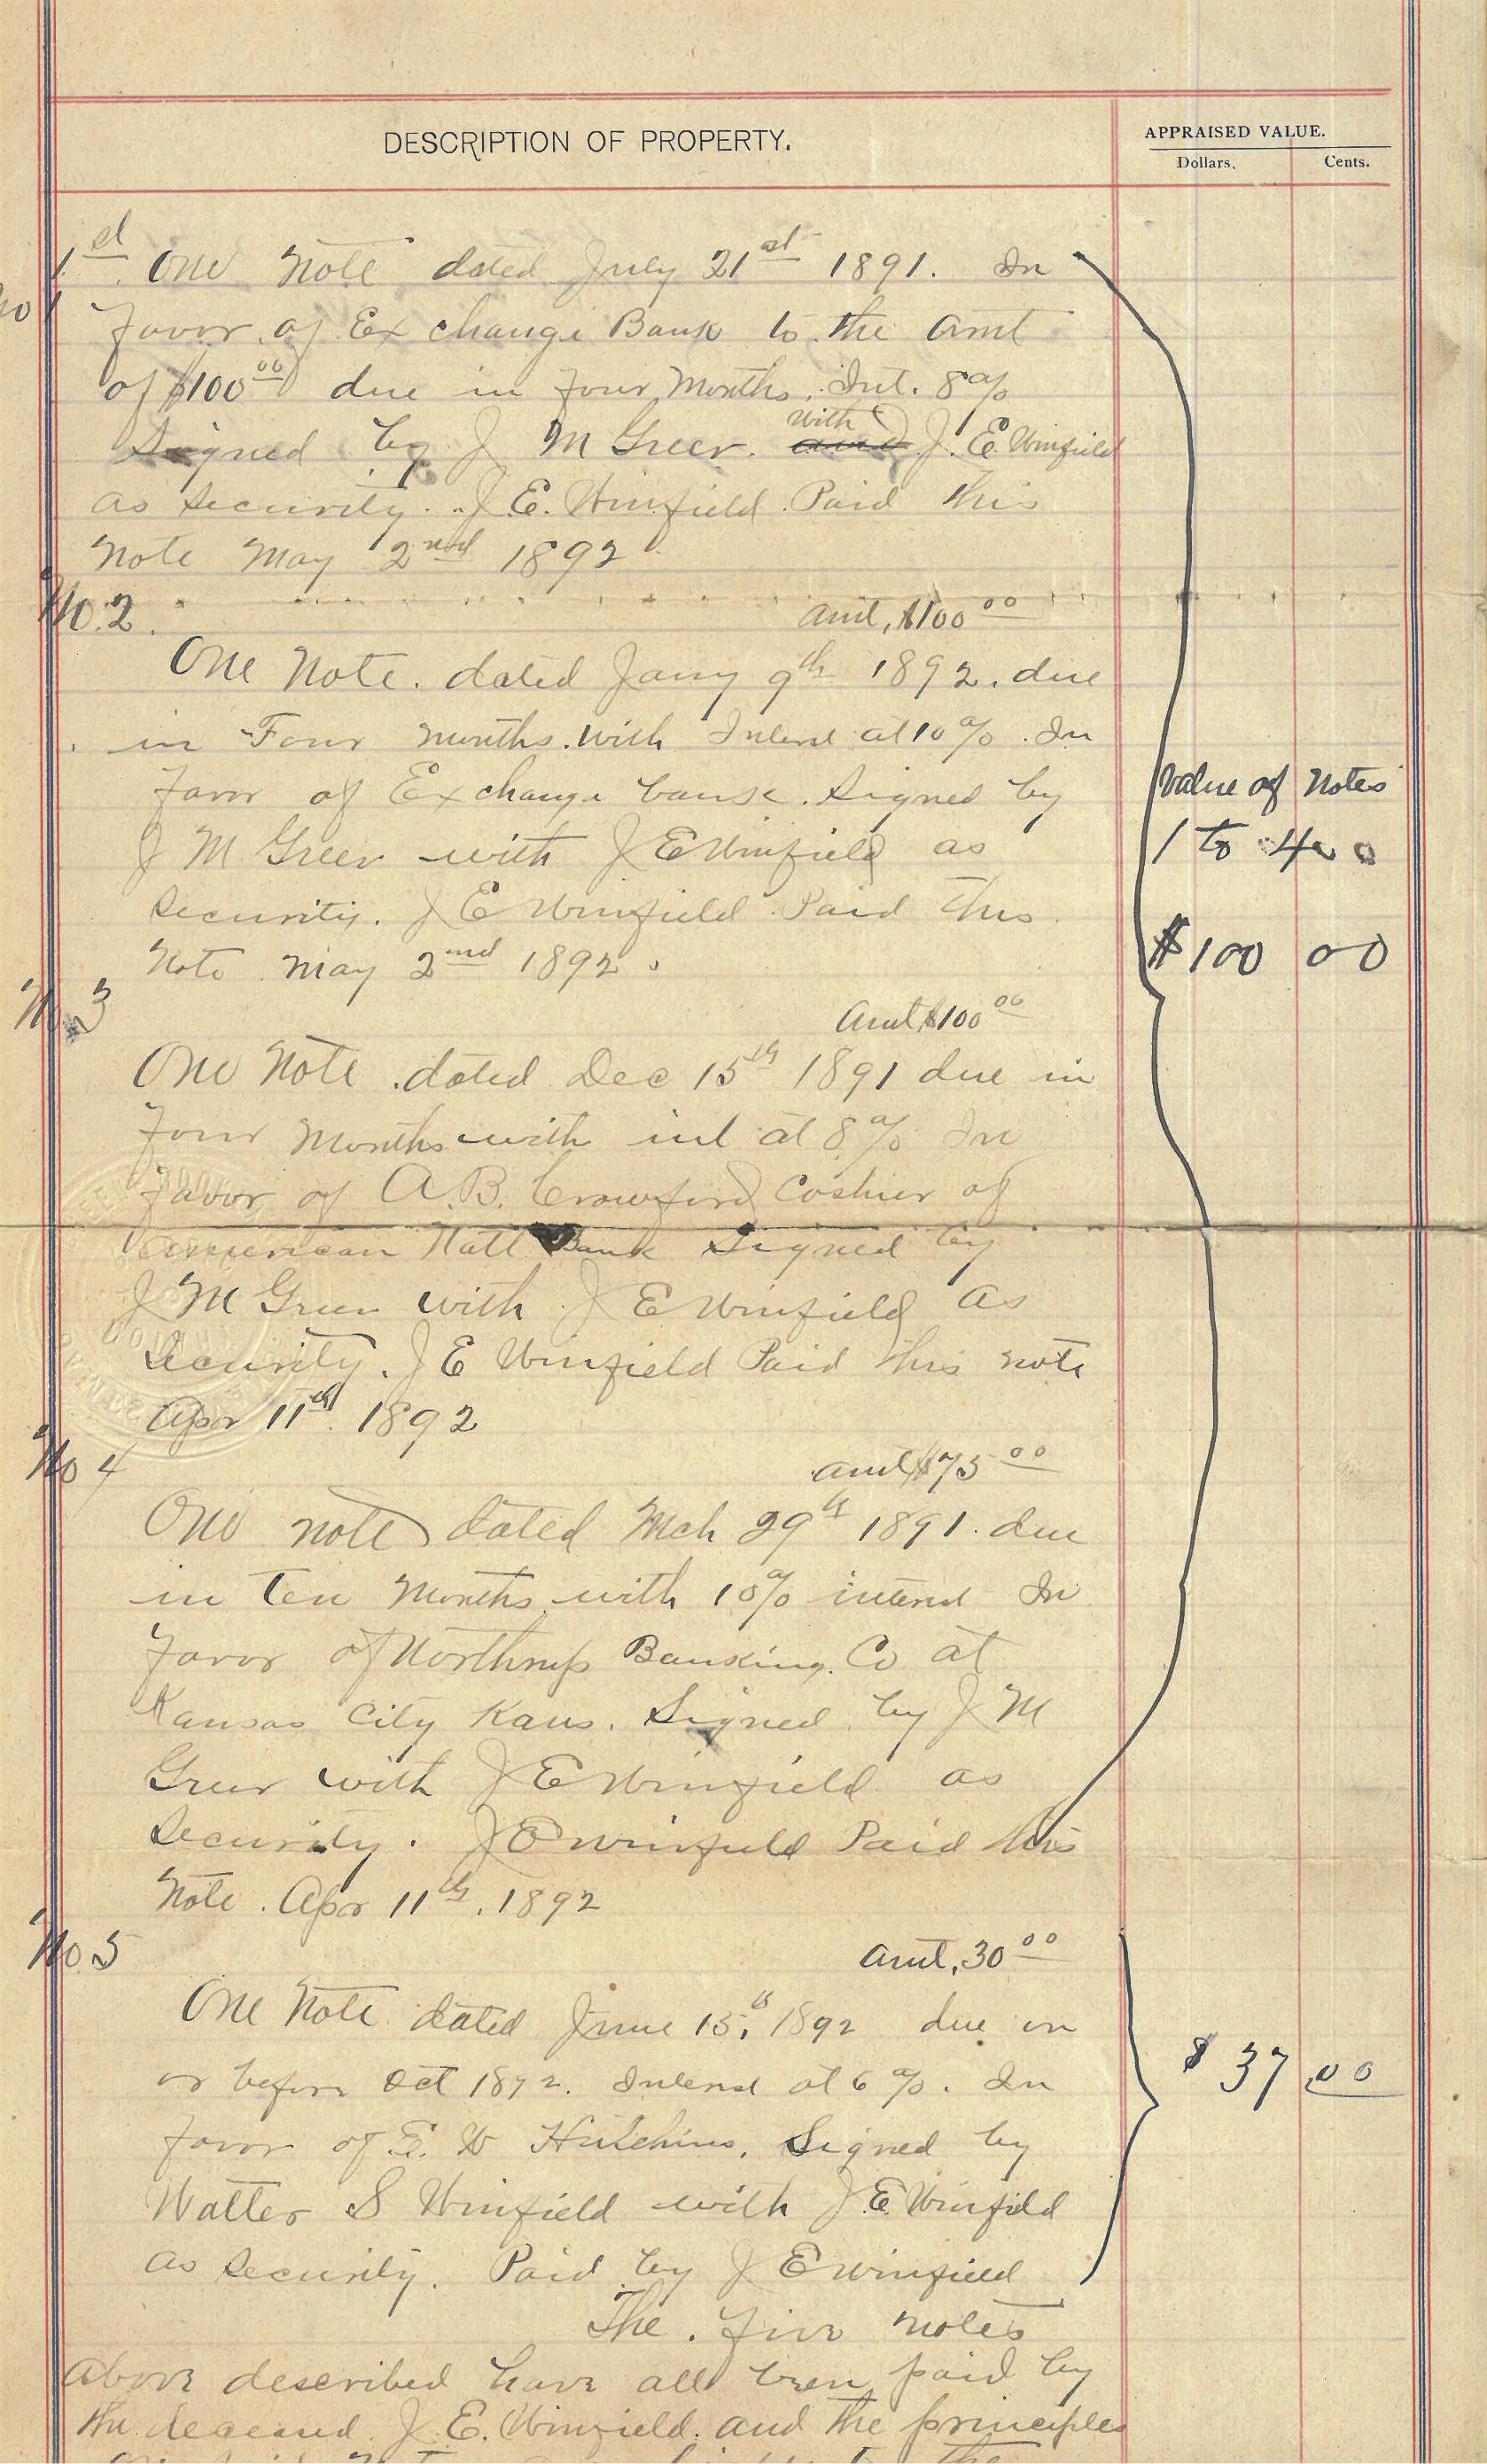 DESCRIPTION OF PROPERTY.
APPRAISED VALUE.
Dollars. Cents.
1st One Note dated July 21st 1891. In
No 1
favor of Exchange Bank to the amt
of $100.00 due in four Months. Int. 8%
Signed by J M Greer. with J. E. Winfield
as Security. J E. Winfield Paid this
Note May 2nd 1892
No. 2.
Amt, $100.00
One Note. dated Jany 9th 1892. due
in Four Months. with Interest at 10%. In
favor of Exchange bank. Signed by
J M Greer with J E Winfield as
Security. J E Winfield Paid This
Note May 2nd 1892.
Value of Notes
1 to 4
$100 00
No 3
Amt $100.00
One Note. dated Dec 15th 1891 due in
four Months with int at 8% In
favor of A.B. Crawford Cashier of
American Natl Bank Signed by
J M Greer with J E Winfield as
Security. J E Winfield Paid this note
Apr 11th. 1892
No 4
amt $75.00
One note dated Mch 29th 1891. due
in Ten Months with 10% interest In
favor of Northrup Banking. Co at
Kansas City Kans. Signed by J M
Greer with J E Winfield as
Security. J E Winfield Paid this
Note. Apr 11th. 1892
No. 5
Amt, 30.00
One Note dated June 15th 1892 due on
or before Oct 1892. Interest at 6%. In
favor of E. W Hutchins, Signed by
Walter S Winfield with J. E. Winfield
as Security. Paid by J E Winfield
$37.00
The five notes
Above described have all been paid by
the deceased J. E. Winfield. and the principles